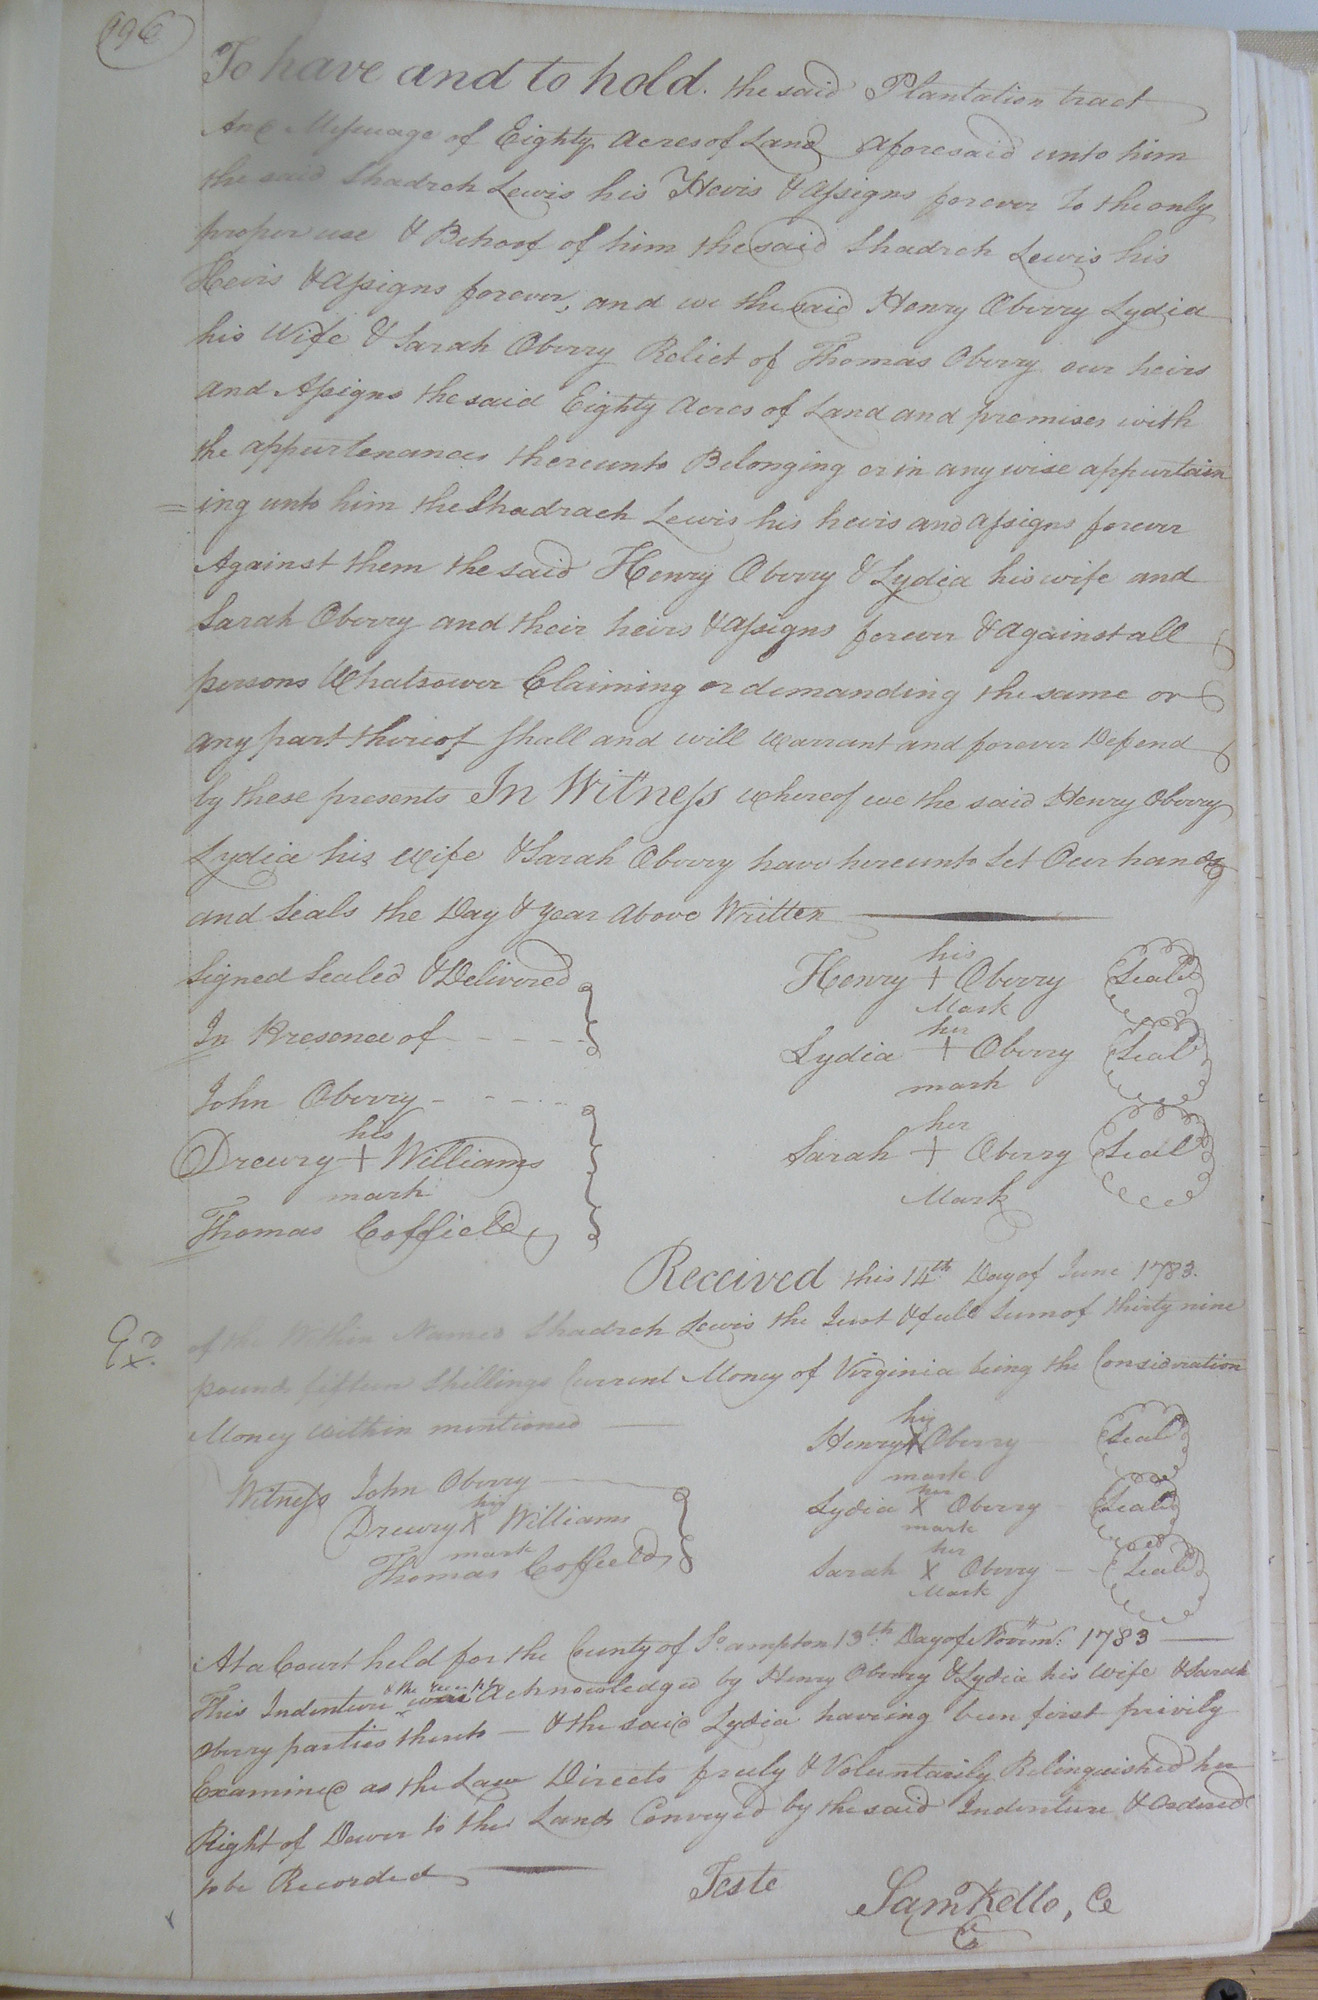 196
To have and to hold. the said Plantation tract
And Messuage of Eighty Acres of Land aforesaid unto him
the said Shadrch Lewis his Heirs & Assigns forever To the only
proper use & Behoof of him the said Shadrch Lewis his
Heirs & Assigns forever, and we the said Henry Oberry Lydia
his Wife & Sarah Oberry Relict of Thomas Oberry our heirs
and Assigns the said Eighty Acres of Land and premises with
the appurtenances thereunto Belonging or in any wise appurtain
=ing unto him the Shadrach Lewis his heirs and assigns forever
Against them the said Henry Oberry & Lydia his wife and
Sarah Oberry and their heirs & assigns forever & against all
persons Whatsoever Claiming or demanding the same or
any part thereof Shall and will warrant and forever Defend
by these presents In Witness whereof we the said Henry Oberry
Lydia his Wife & Sarah Oberry have hereunto Set Our hands
and Seals the Day & year Above Written
Signed Sealed & Delivered
In Presence of
John Oberry
his
Drewry + Williams
mark
Thomas Coffield
his
Henry + Oberry Seal
Mark
her
Lydia + Oberry Seal
mark
her
Sarah + Oberry Seal
Mark
Received this 14th Day of June 1783.
Exd.
of the Within Named Shadrch Lewis the Just & full Sum of thirty nine
pounds fifteen Shillings Current Money of Virginia being the Consideration
Money Within mentioned
Witness John Oberry
his
Drewry X Williams
mark
Thomas Coffield
his
Henry X Oberry Seal
mark
her
Lydia X Oberry Seal
mark
her
Sarah X Oberry Seal
Mark
At a Court held for the County of So.ampton 13th. Day of Novem: 1783
& the receipt
This Indenture was Acknowledged by Henry Oberry & Lydia his Wife & Sarah
Oberry parties thereto — & the said Lydia having been first privily
Examined as the Law Directs freely & Voluntarily Relinquished her
Right of Dower to the Lands Conveyed by the said Indenture & Ordered
to be Recorded
Teste
Saml Kello, C
C